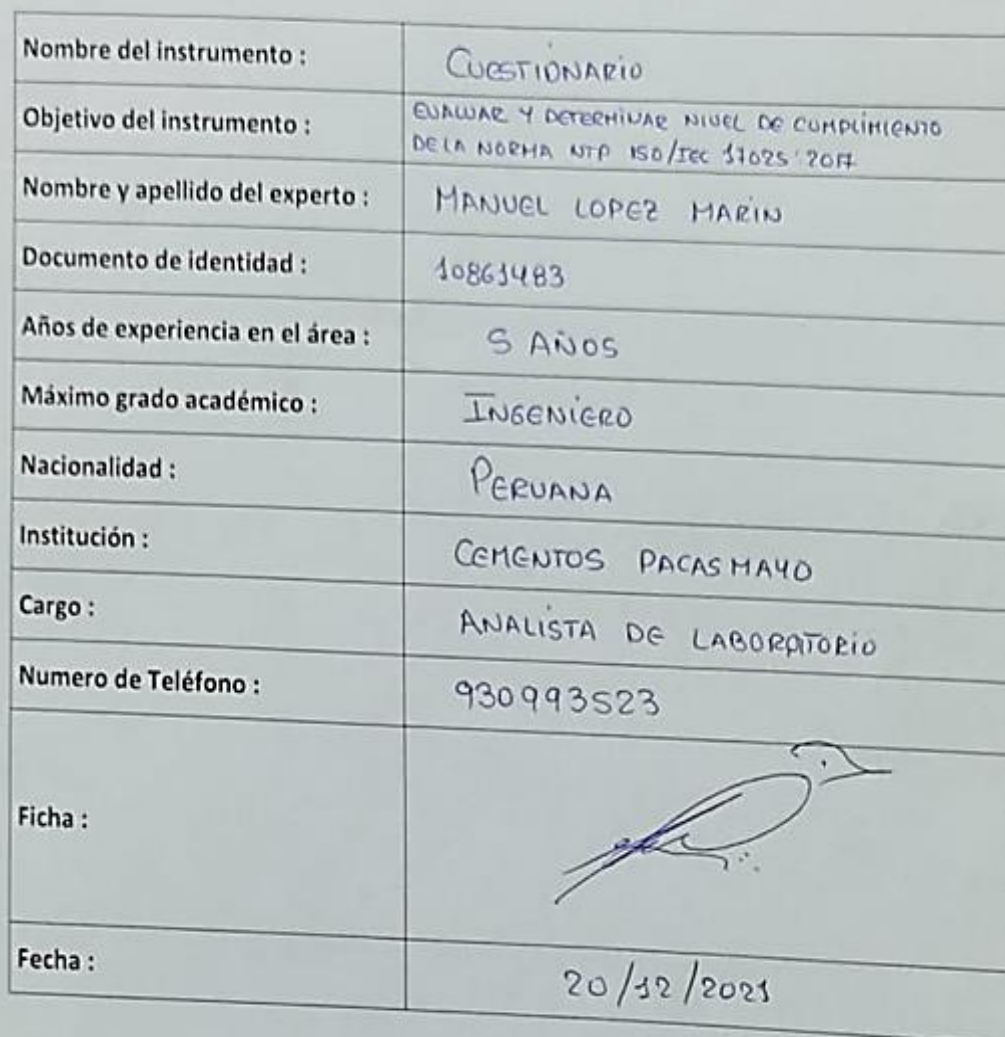 Nombre del instrumento : CUESTIONARIO
Objetivo del instrumento : EVALUAR Y DETERMINAR NIVEL DE CUMPLIMIENTO
DE LA NORMA NTP ISO/IEC 17025:2017
Nombre y apellido del experto : MANUEL LOPEZ MARIN
Documento de identidad : 10861483
Años de experiencia en el área : 5 AÑOS
Máximo grado académico : INGENIERO
Nacionalidad : PERUANA
Institución : CEMENTOS PACASMAYO
Cargo : ANALISTA DE LABORATORIO
Numero de Teléfono : 930993523
Ficha :
Fecha : 20/12/2021